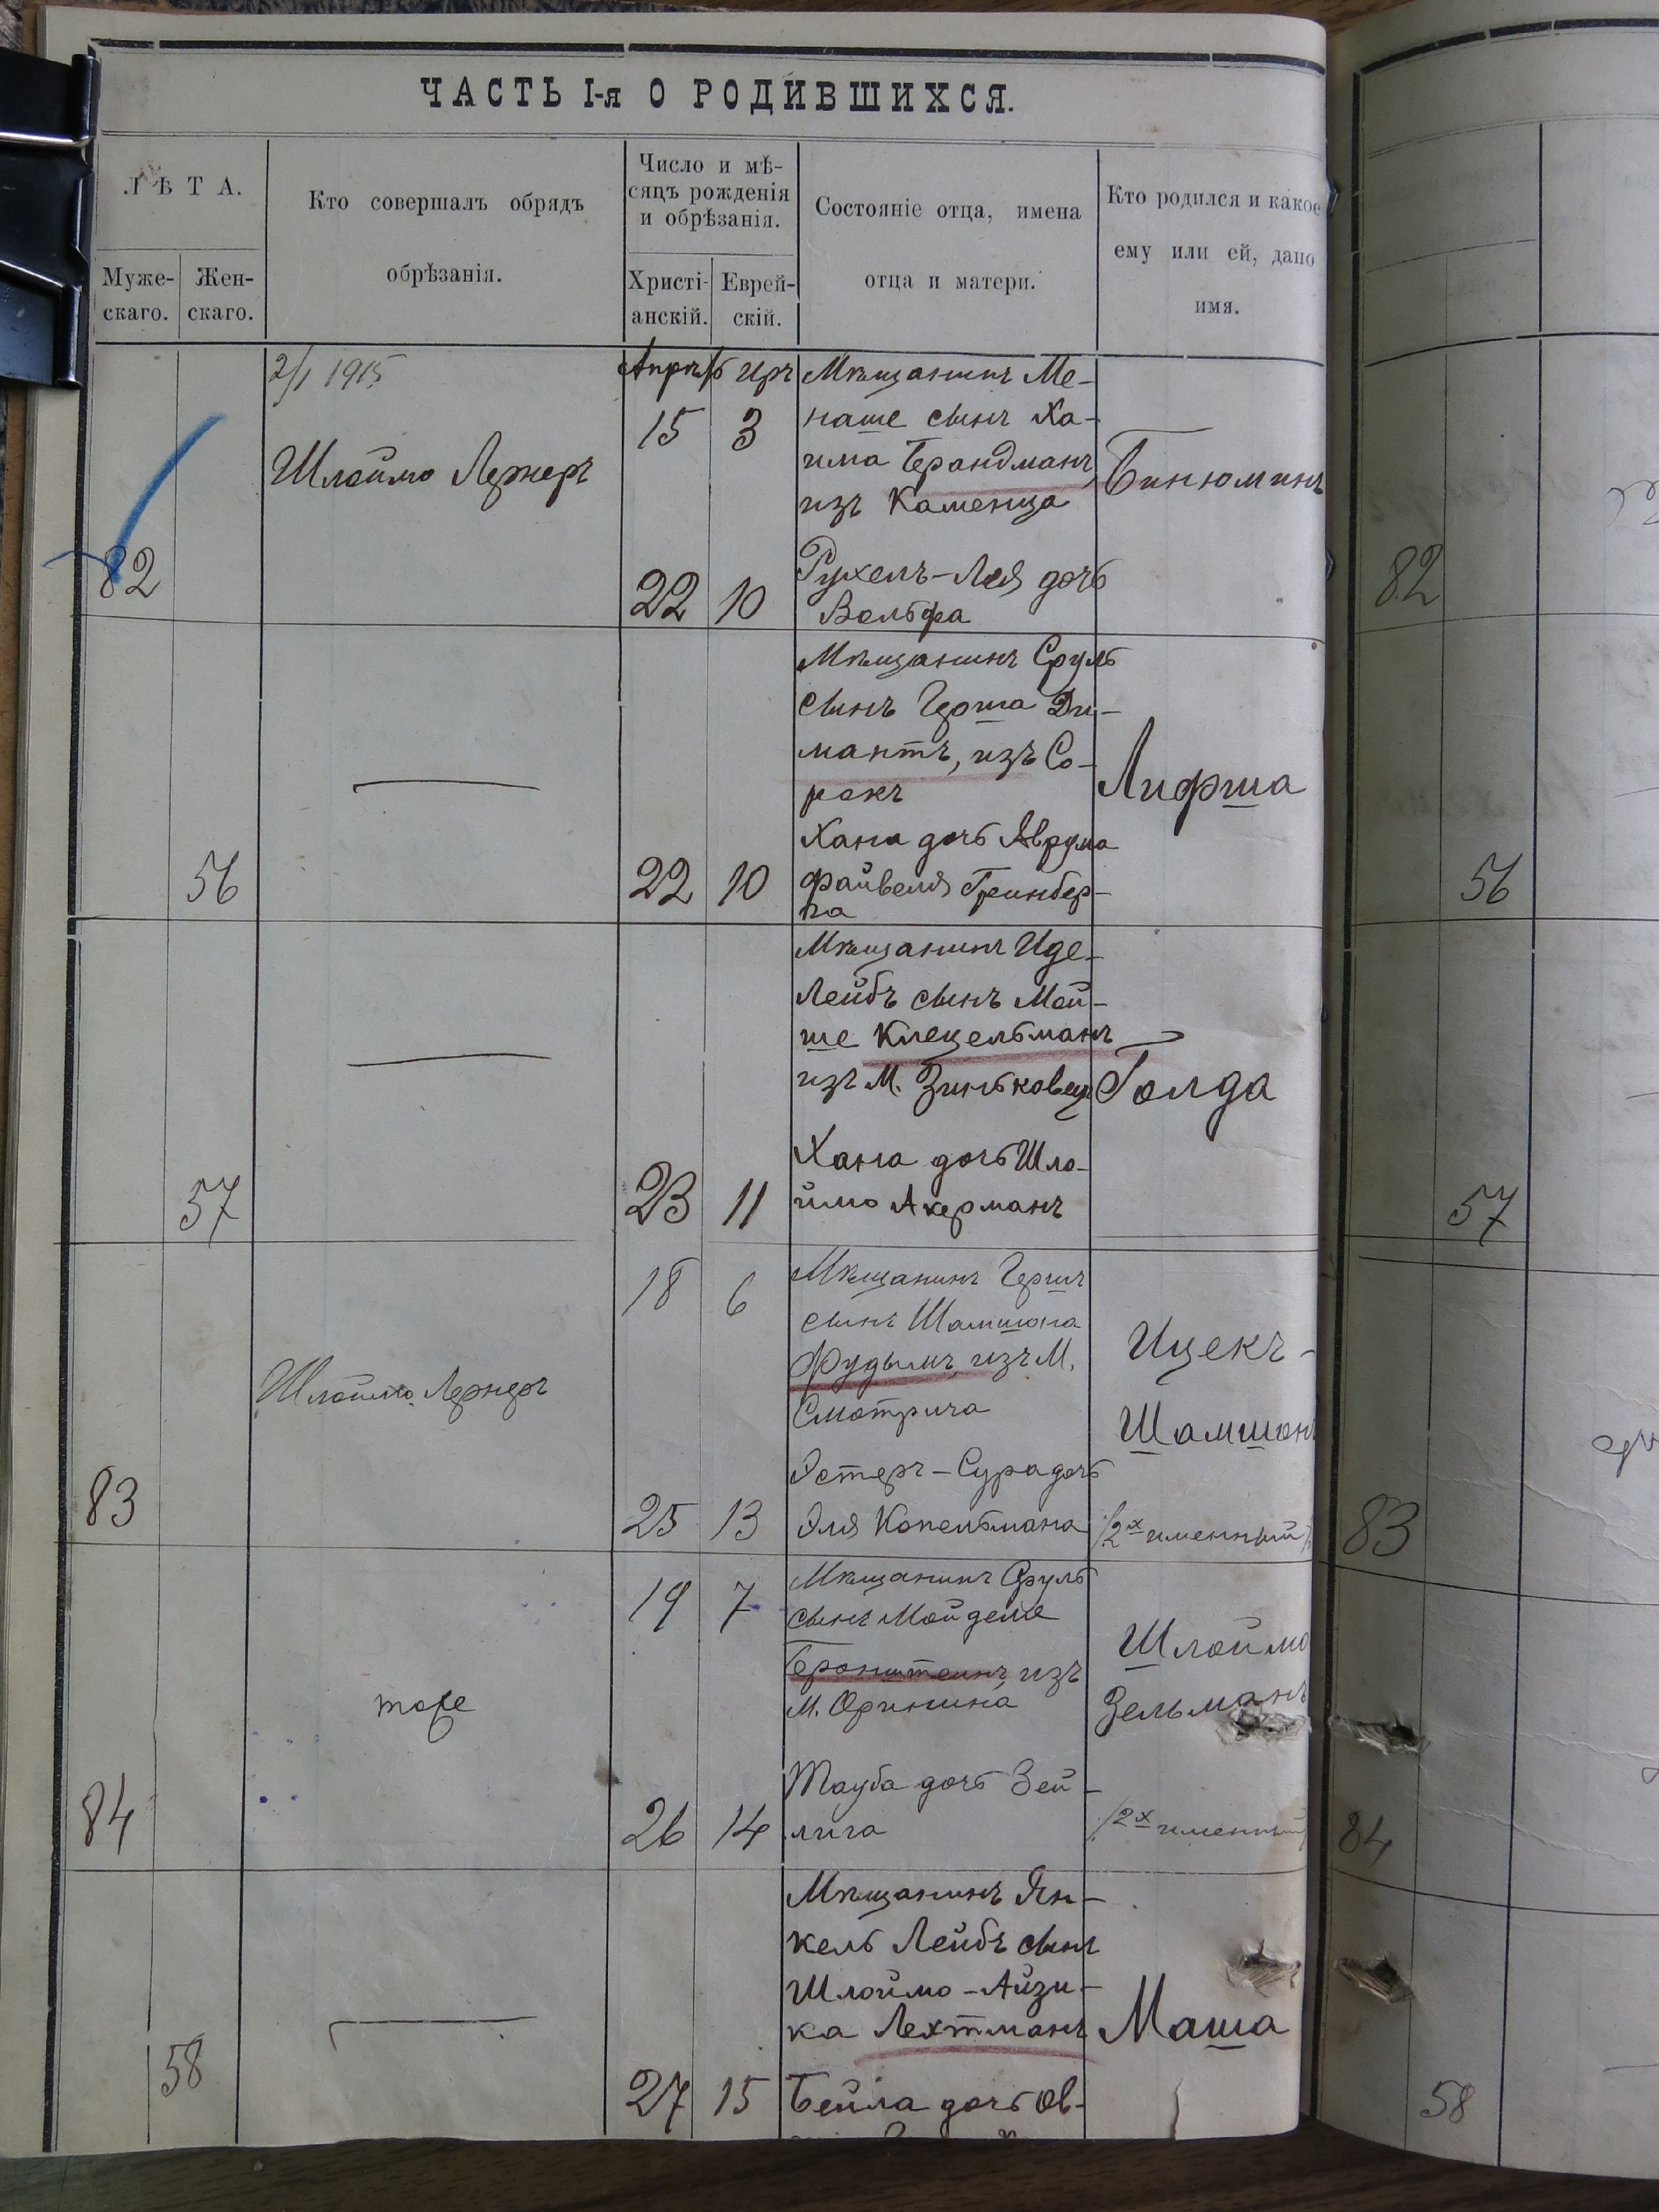 ЧАСТЬ I-я О РОДИВШИХСЯ.
ЛѢТА.
Муже-
скаго.
Жен-
скаго.
Кто совершалъ обрядъ
обрѣзанія.
Число и мѣ-
сяцъ рожденія
и обрѣзанія.
Христі-
анскій.
Еврей-
скій.
Состояніе отца, имена
отца и матери.
Кто родился и какое
ему или ей, дано
имя.
2/I 1915
82
Шлоймо Лернеръ
Апрѣль Иръ
15 3
22 10
Мѣщанинъ Ме-
наше сынъ Ха-
има Брандманъ
изъ Каменца
Рухель-Лея дочь
Вольфа
Бинюминъ
82
56
22 10
Мѣщанинъ Сруль
сынъ Герша Ди-
мантъ, изъ Со-
рокъ
Хана дочь Аврума
Файвеля Гринбер-
га
Лифша
56
57
23 11
Мѣщанинъ Иде-
Лейбъ сынъ Мой-
ше Клецельманъ
изъ М. Зиньковец
Хана дочь Шло-
ймо Акерманъ
Голда
57
83
Шлоймо Лернеръ
18 6
25 13
Мѣщанинъ Гершъ
сынъ Шамшона
Фудымъ, изъ М.
Смотрича
Эстеръ-Сура дочь
Эля Копельмана
Ицекъ-
Шамшонъ
/2х именный/
83
84
тоже
19 7
26 14
Мѣщанинъ Сруль
сынъ Мойдеше
Бронштейнъ изъ
М. Оринина
Тауба дочь Зей-
лига
Шлоймо
Зельманъ
/2х именный/
84
58
27 15
Мѣщанинъ Ян-
кель Лейбъ сынъ
Шлоймо-Айзи-
ка Лехтманъ
Бейла дочь Ов-
Маша
58